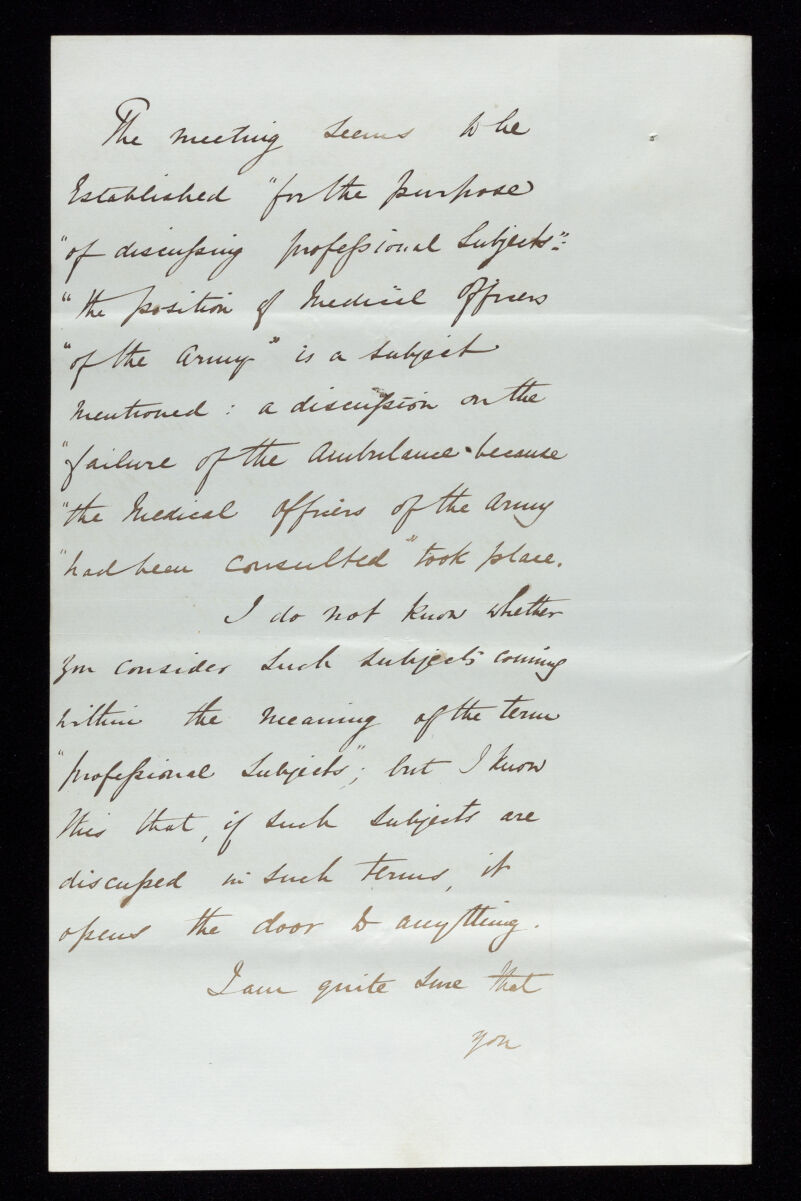 The meeting seems to be
Established "for the purpose
"of discussing professional Subjects":
"the position of Medical Officers
"of the Army" is a subject
mentioned: a discussion on the
"failure of the Ambulance because
"the Medical Officers of the Army
"had been consulted" took place.
I do not know whether
you consider such subjects coming
within the meaning of the term
"professional Subjects"; but I know
this that, if such subjects are
discussed in such terms, it
opens the door to anything.
I am quite sure that
you